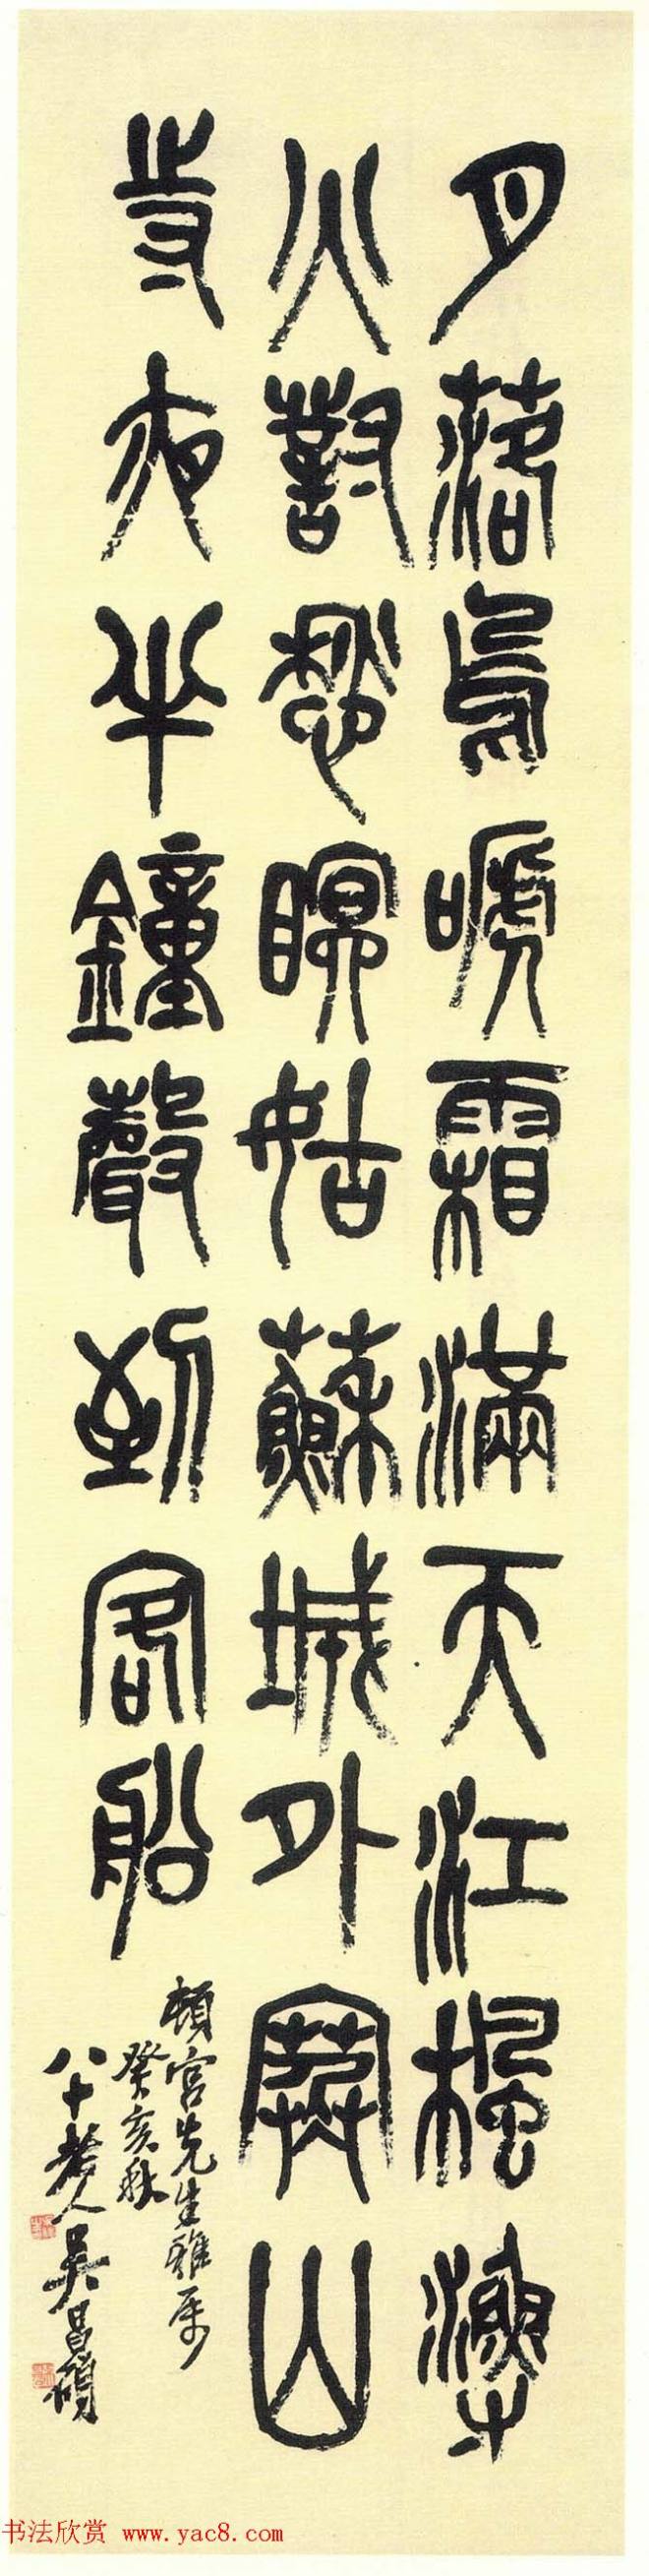 月落烏嗁霜滿天江楓漁
火對愁瞑姑蘇城外寒山
寺夜半鐘聲到客船
頓宮先生雅属
癸亥秋
八十老人吴昌碩
书法欣赏 www.yac8.com